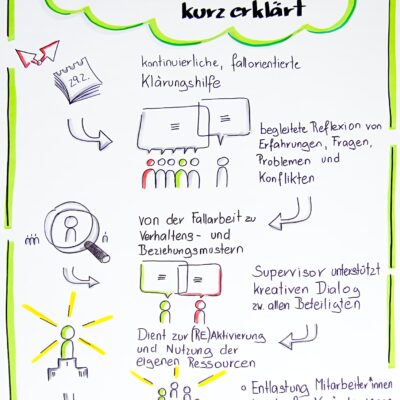 kurz erklärt
29.2.
kontinuierliche, fallorientierte
Klärungshilfe
begleitete Reflexion von
Erfahrungen, Fragen,
Problemen und
Konflikten
von der Fallarbeit zu
Verhaltens- und
Beziehungsmustern
Supervisor unterstützt
kreativen Dialog
zw. allen Beteiligten
Dient zur (RE)Aktivierung
und Nutzung der
eigenen Ressourcen
o Entlastung Mitarbeiter*innen